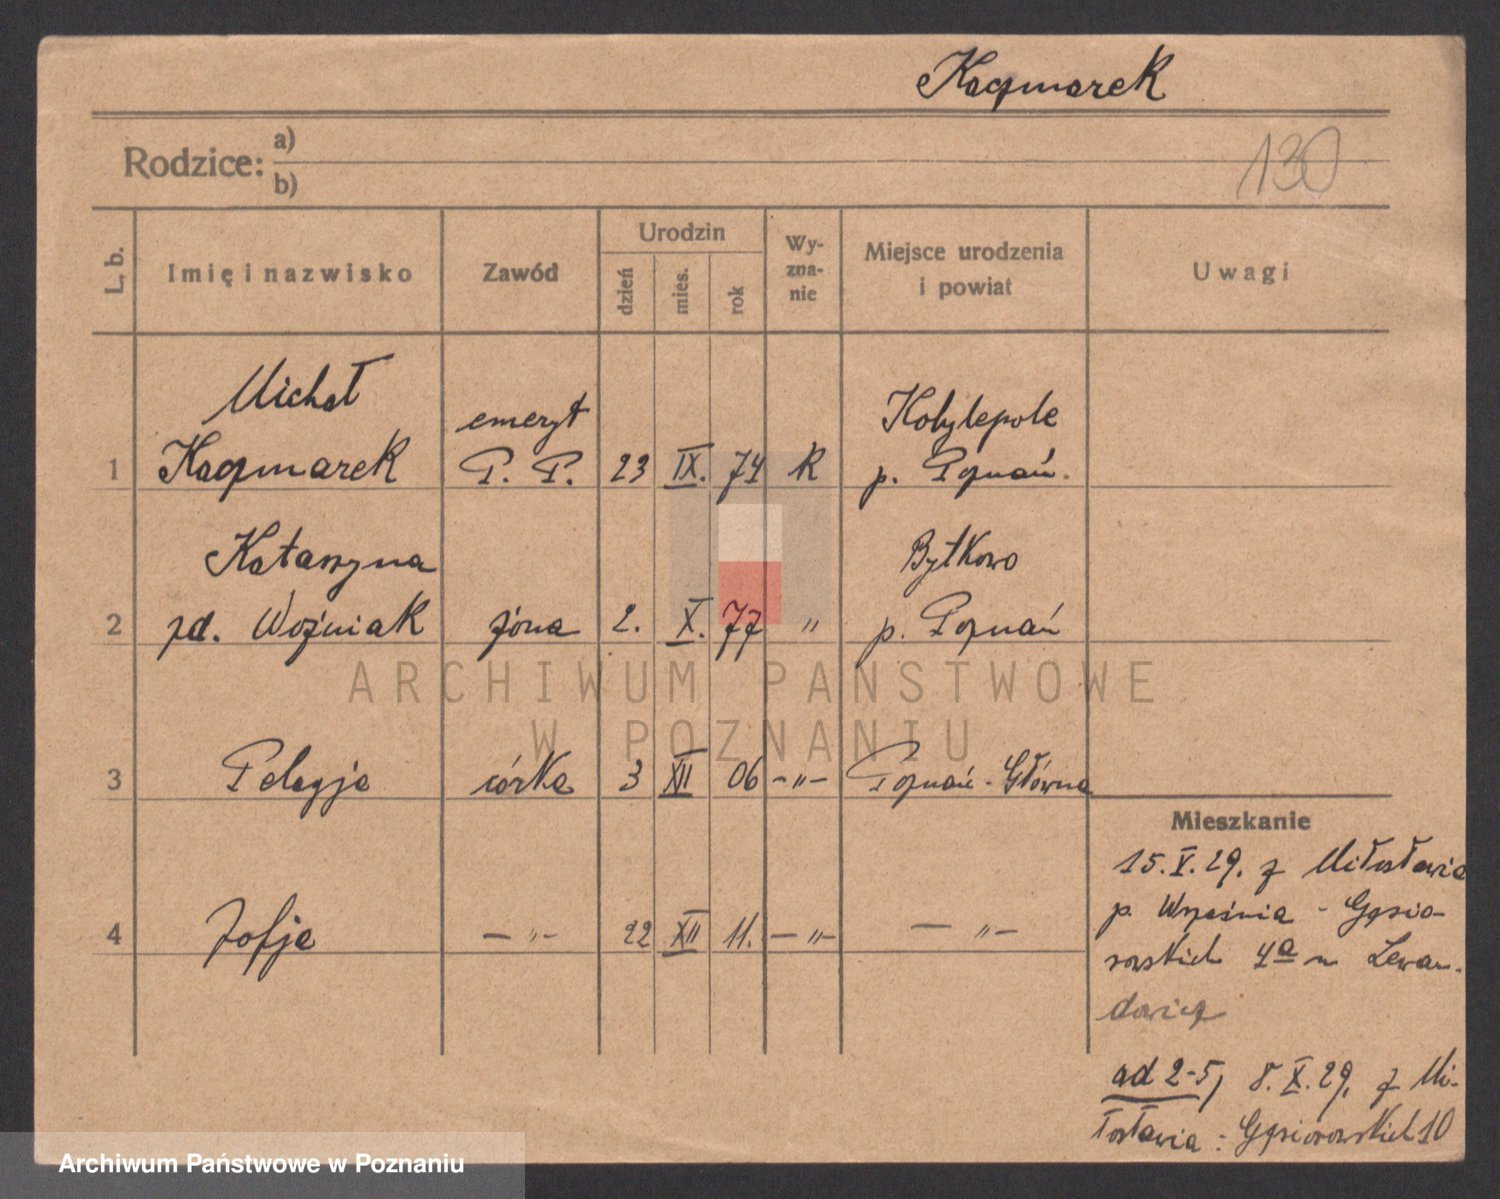 Kaczmarek
130
Rodzice: a)
b)
L. b.
Imię i nazwisko
Zawód
Urodzin
dzień
mies.
rok
Wy-
zna-
nie
Miejsce urodzenia
i powiat
Uwagi
Michał
Kaczmarek
emeryt
P. P.
1
23 IX. 74 k
Kobylepole
p. Poznań.
Katarzyna
zd. Woźniak
2
żona 2. X. 77 "
Bytkowo
p. Poznań
3 Pelagja córka 3 XII 06 -"- Poznań-Główna
4 Zofja -"- 22 XII 11. -"- -"-
Mieszkanie
15.V.29. z Miłosławia
p. Września - Gąsio-
rowskich 4a u Lewan-
dowicz
ad 2-5, 8.X.29, z Mi-
łosławia - Gąsiorowskich 10
ARCHIWUM PAŃSTWOWE
W POZNANIU
Archiwum Państwowe w Poznaniu